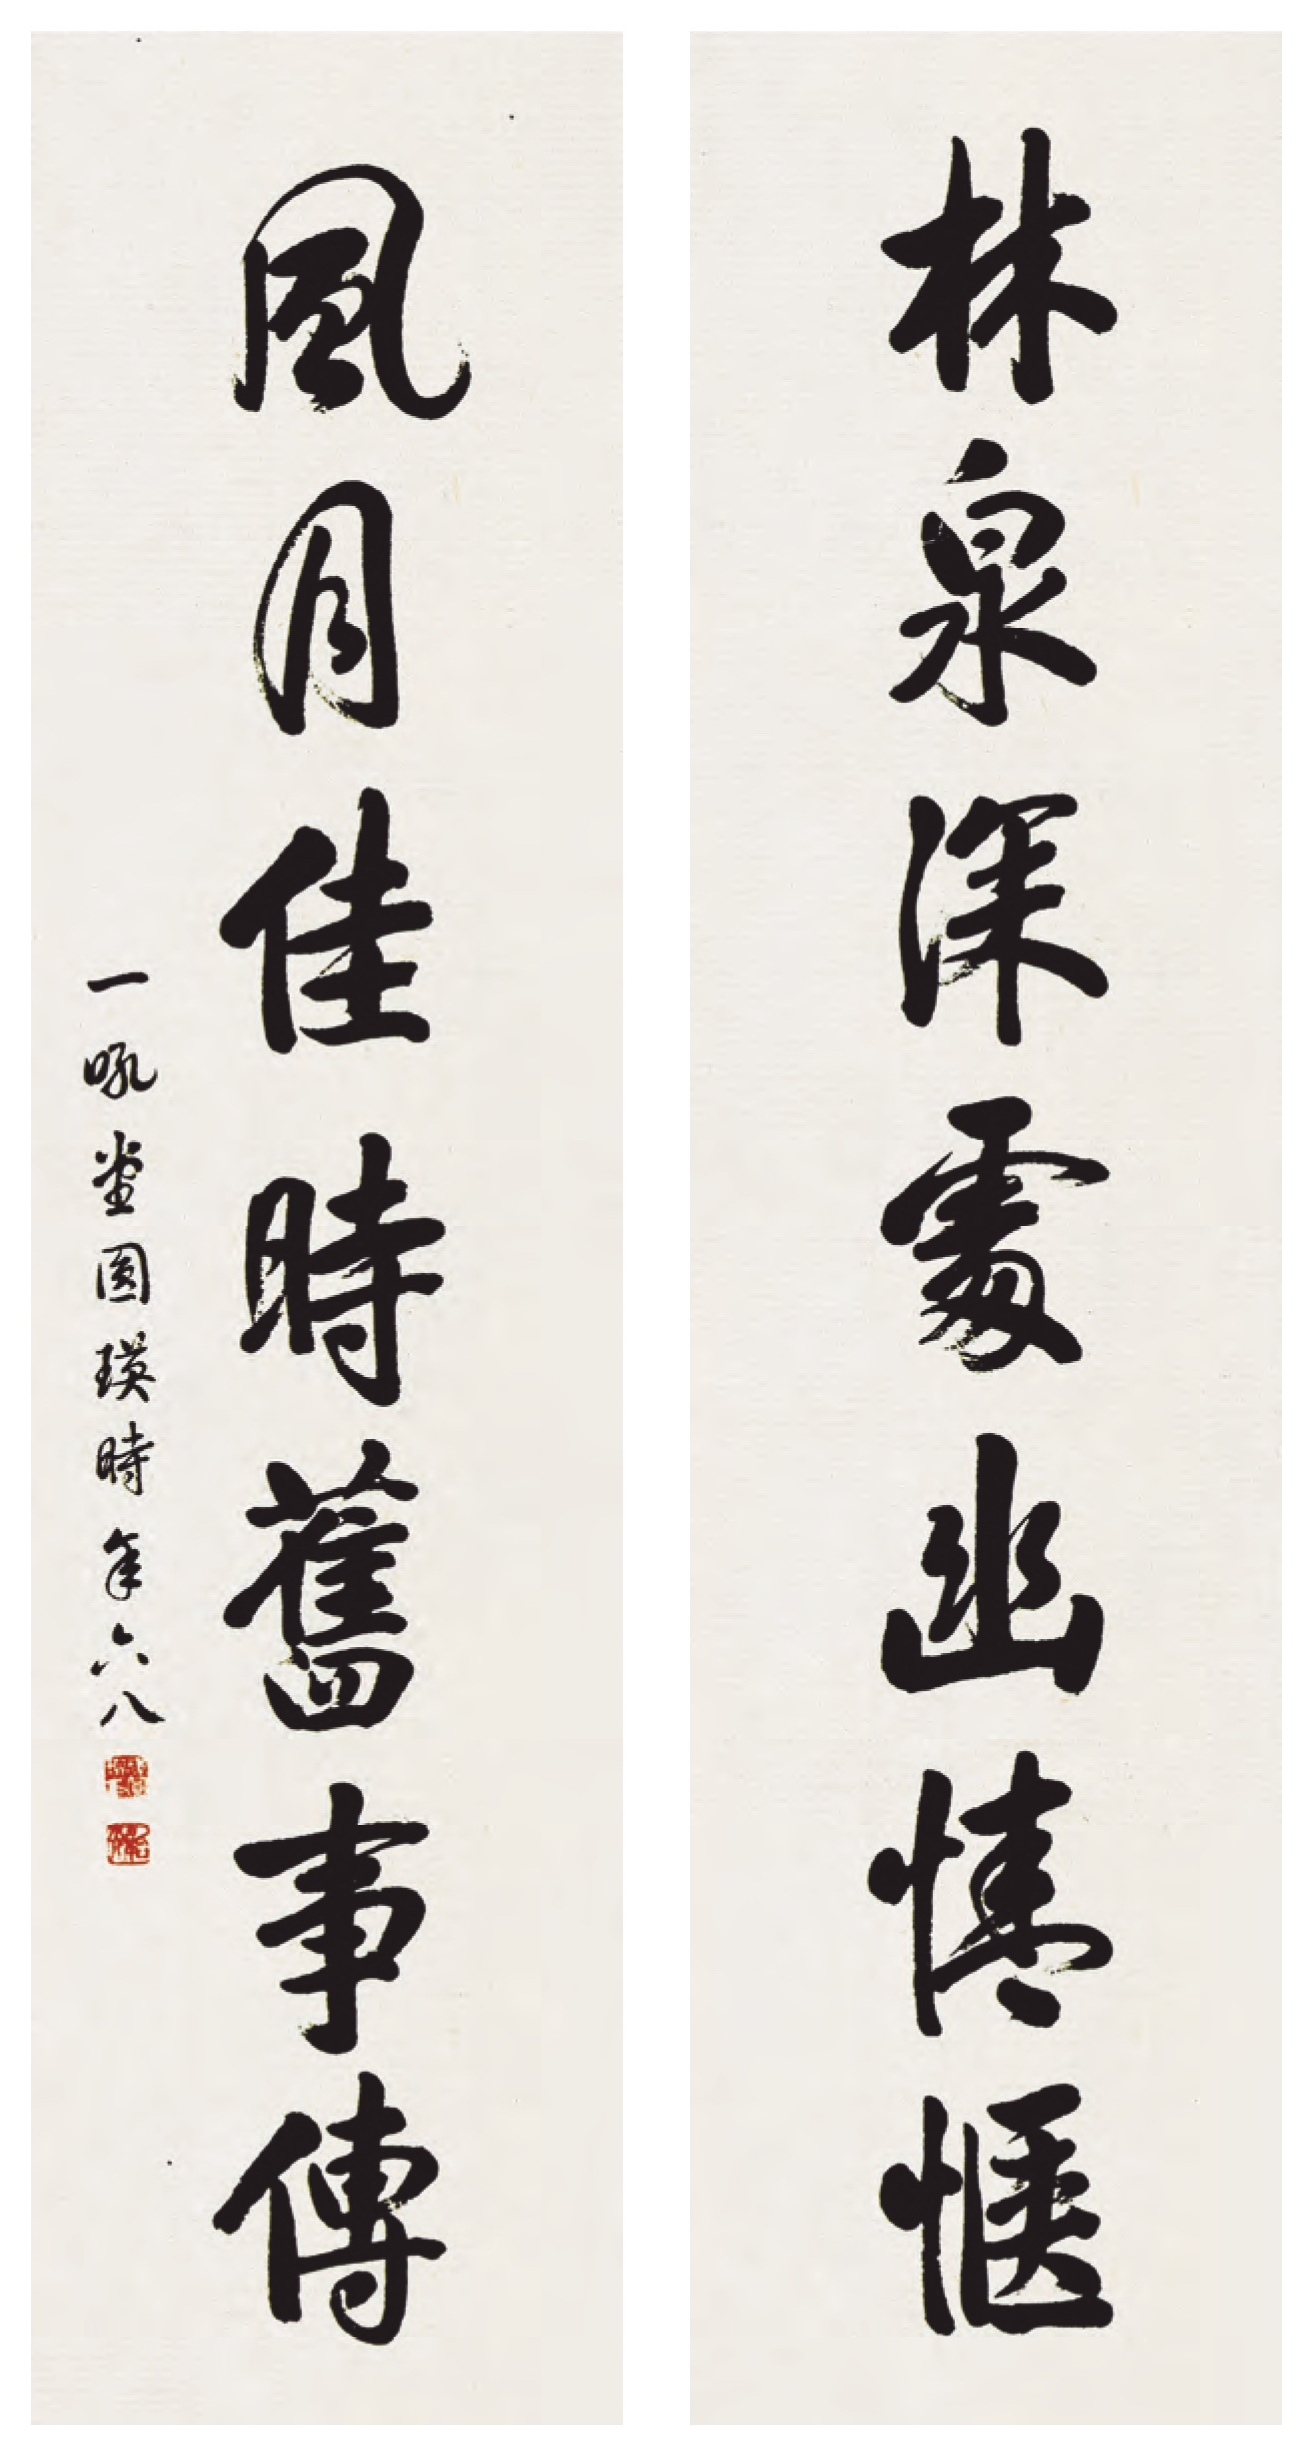 林泉深處幽情愜
風月佳時舊事傳
一吼堂圓瑛時年六八